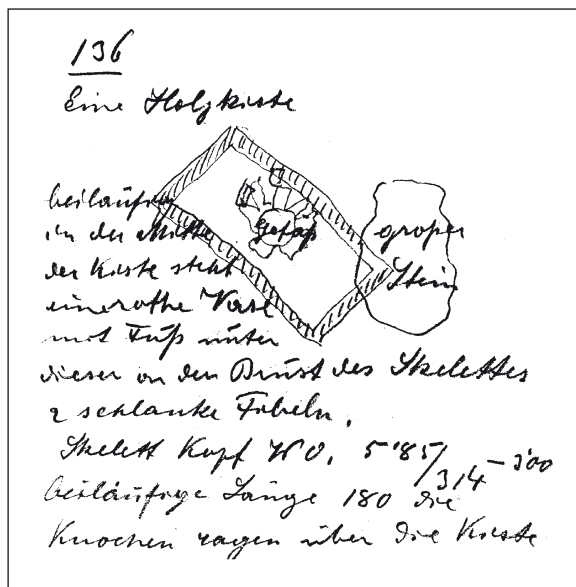 136
Eine Holzkiste
beiläufig
in der Mitte
der Kiste steht
eine rothe Vase
mit Fuß unter
dieser an der Brust des Skelettes
2 schlanke Fibeln.
Gefäß
großer
Stein
Skelett Kopf NO. 5'85/314 – 3'00
beiläufige Länge 180 die
Knochen ragen über die Kiste